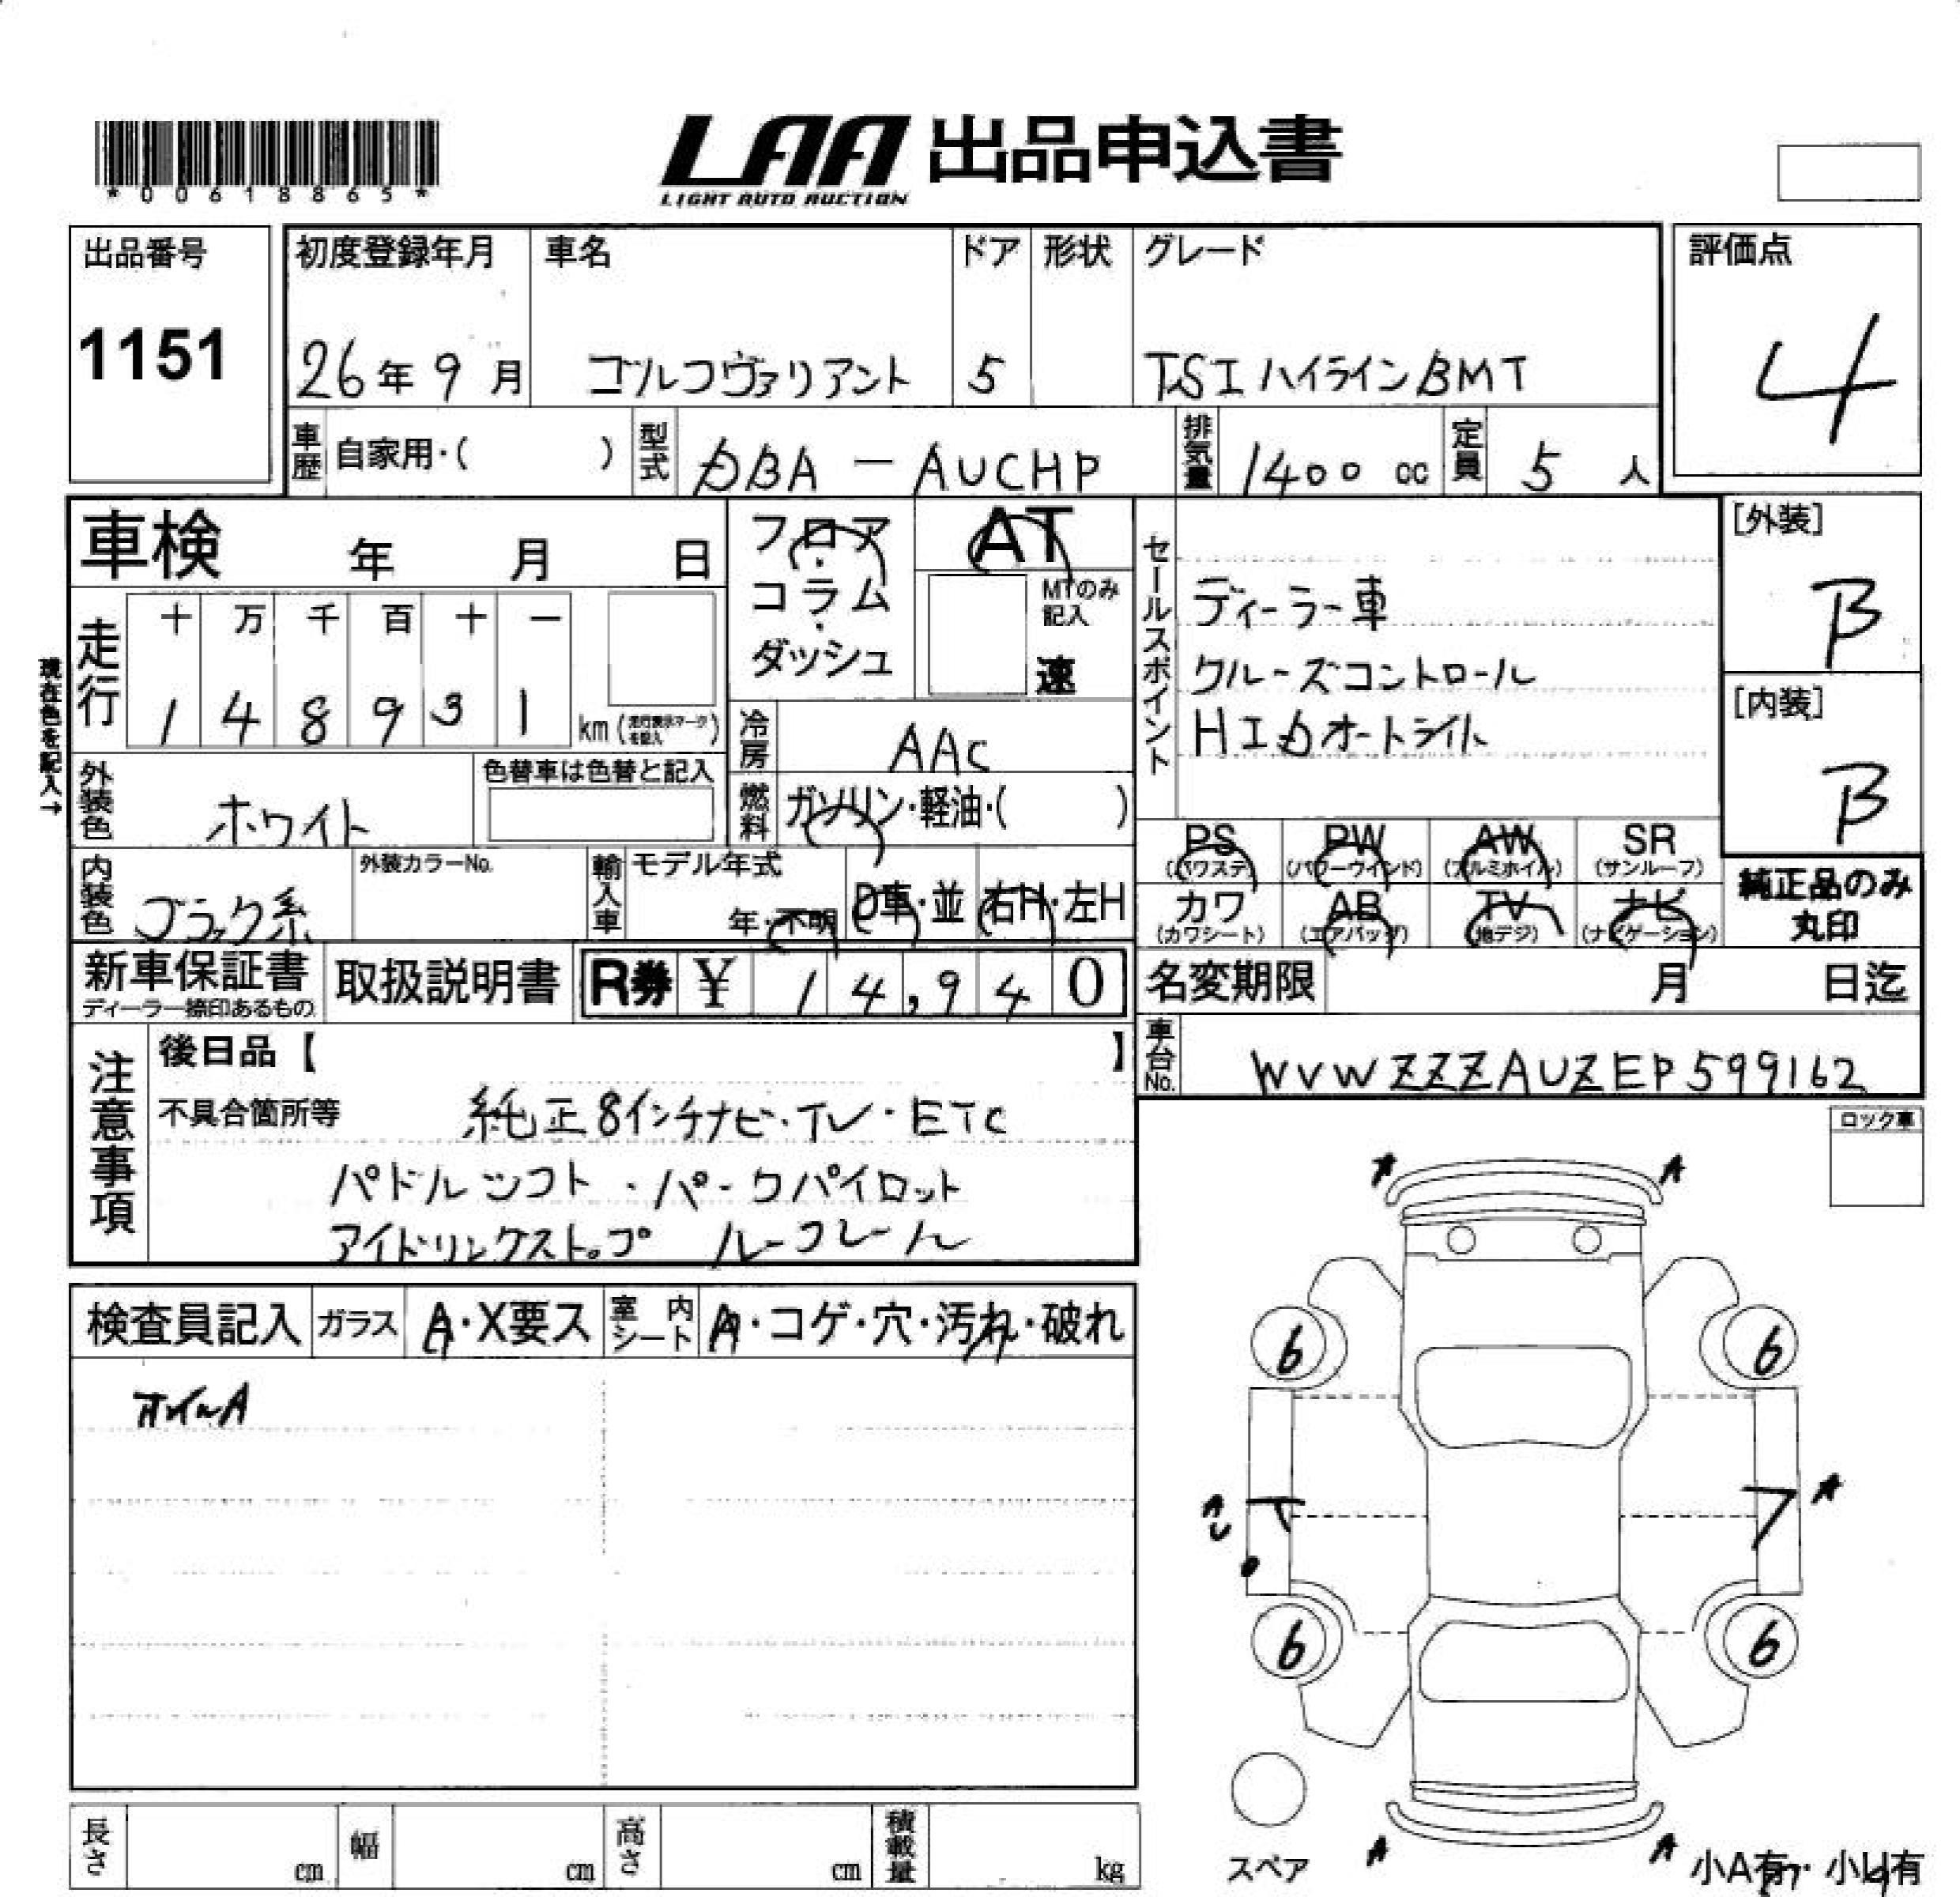 *00618865*
LAA 出品申込書
LIGHT AUTO AUCTION
出品番号
1151
初度登録年月
26年9月
車名
ゴルフヴァリアント
ドア
5
形状
グレード
TSIハイラインBMT
評価点
4
車歴
自家用・( )
型式
DBA-AUCHP
排気量
1400 cc
定員
5 人
車検 年 月 日
フロア・コラム・ダッシュ
AT
MTのみ記入
速
セールスポイント
ディーラー車
クルーズコントロール
HIDオートライト
[外装]
B
[内装]
B
現在色を記入→
走行
十 万 千 百 十 一
1 4 8 9 3 1
km(走行表示マークを記入)
冷房
AAC
外装色
ホワイト
色替車は色替と記入
燃料
ガソリン・軽油・( )
PS
(パワステ)
PW
(パワーウインド)
AW
(アルミホイル)
SR
(サンルーフ)
カワ
(カワシート)
AB
(エアバッグ)
TV
(地デジ)
ナビ
(ナビゲーション)
純正品のみ
丸印
内装色
ブラック系
外装カラーNo.
輸入車
モデル年式
年・不明
D車・並
右H・左H
新車保証書
ディーラー捺印あるもの
取扱説明書
R券 ¥ 14,940
名変期限 月 日迄
車台No.
WVWZZZAUZEP599162
注意事項
後日品【 】
不具合箇所等
純正8インチナビ・TV・ETC
パドルシフト・パークパイロット
アイドリングストップ ルーフレール
ロック車
検査員記入
ガラス
A・X要ス
室内シート
A・コゲ・穴・汚れ・破れ
ホイールA
A A
6 6
A
A
U
6 6
A A
スペア
小A有・小U有
長さ cm
幅 cm
高さ cm
積載量 kg